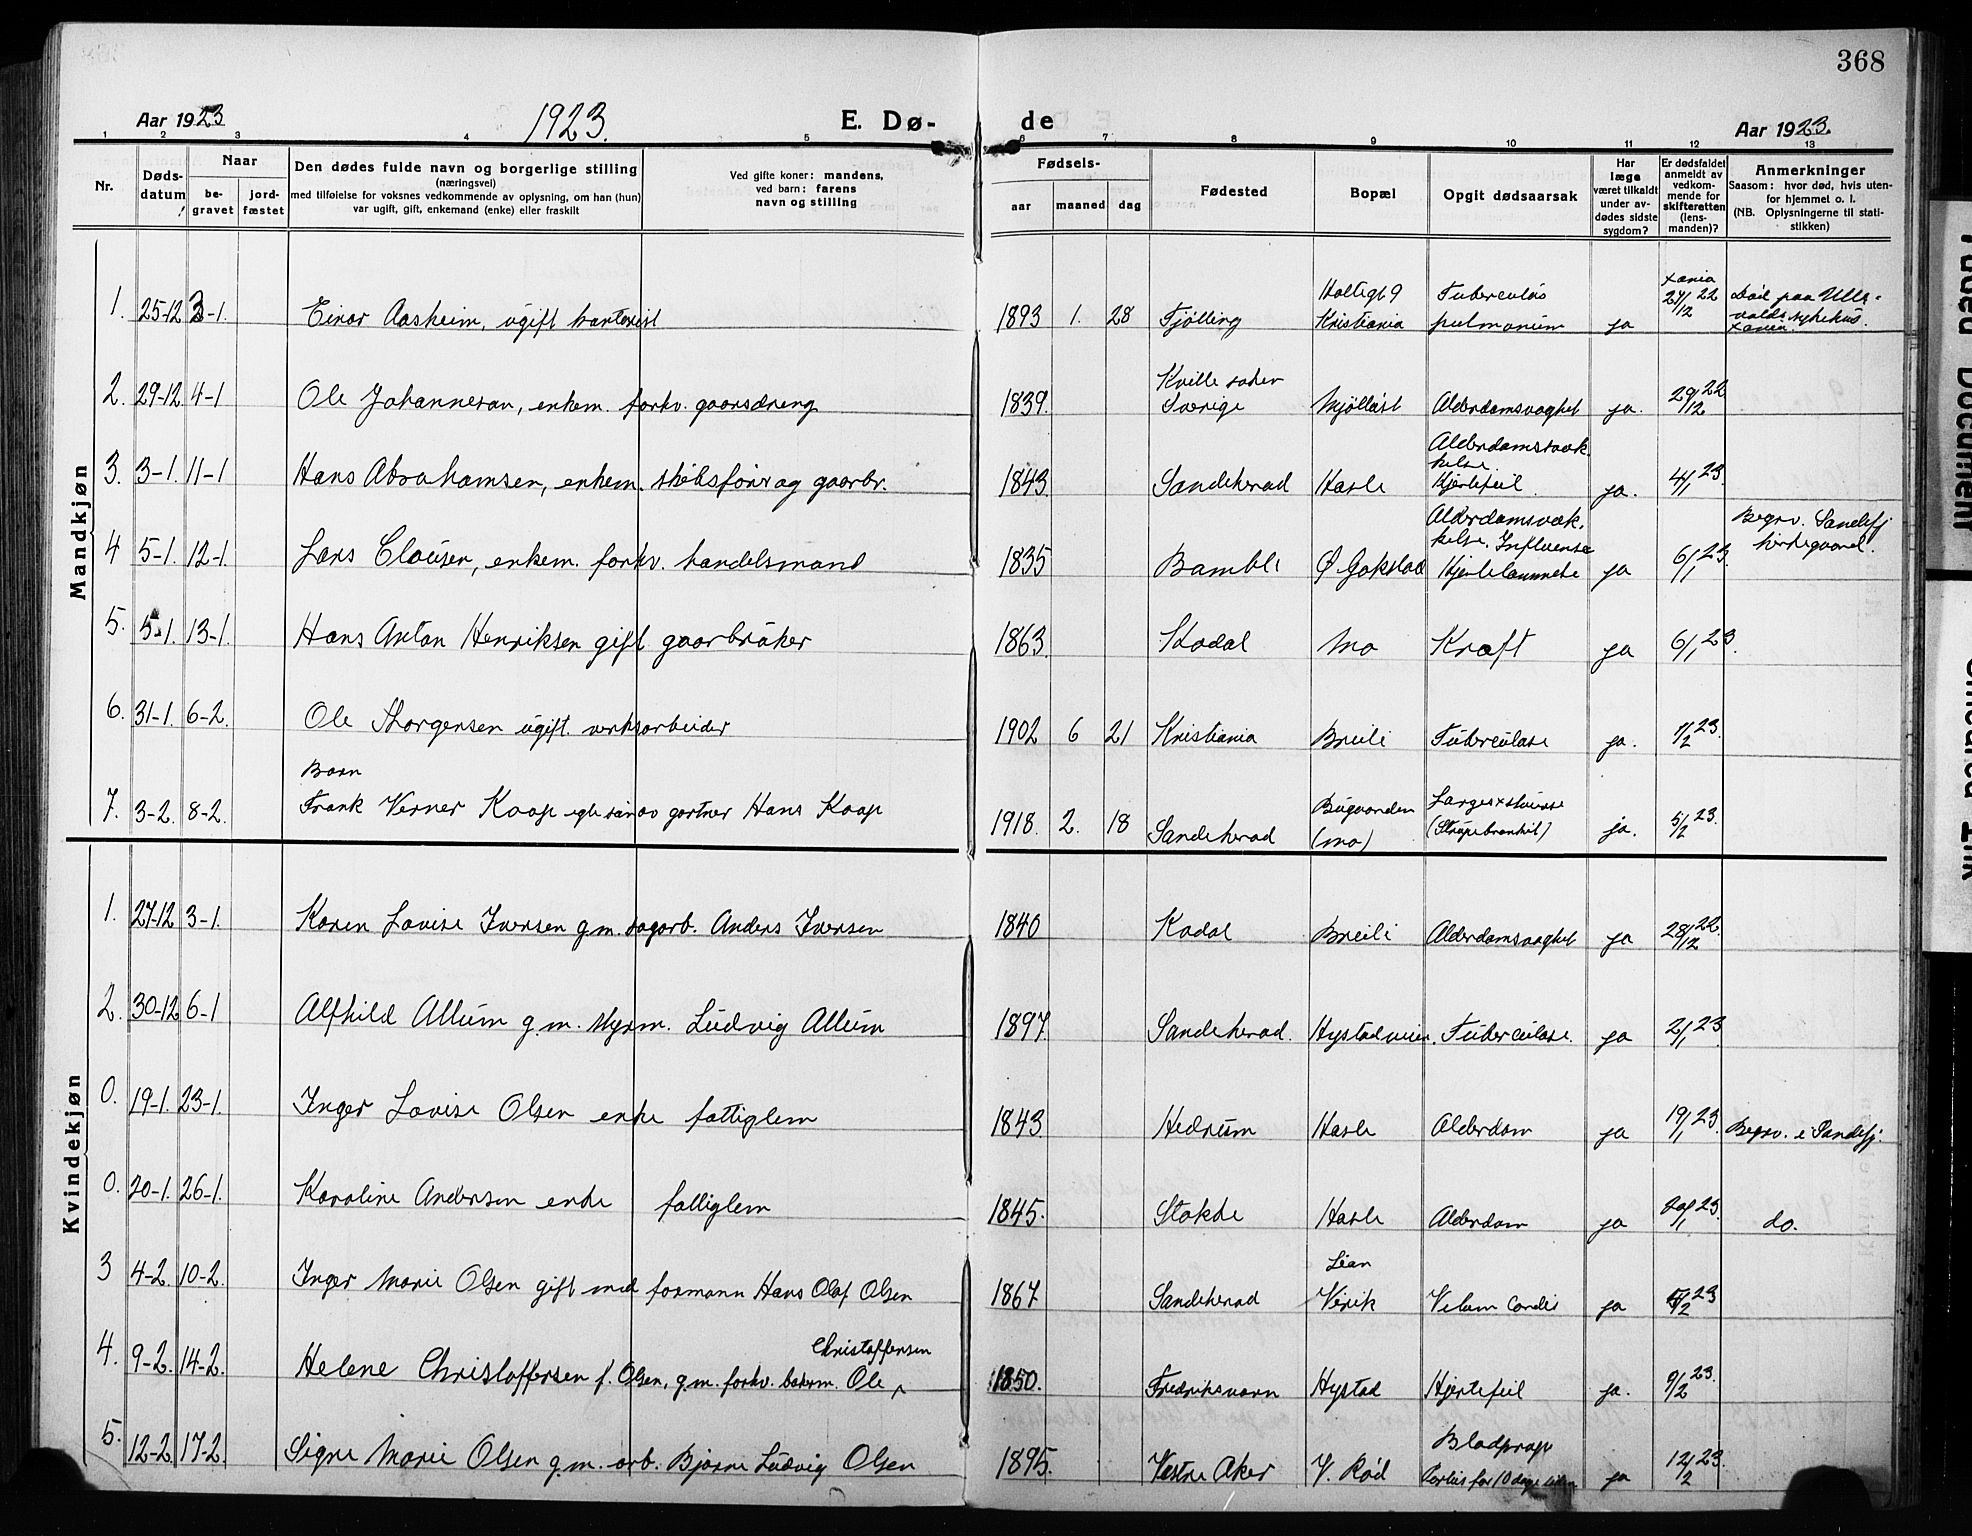 368
Aar 1923
1923.
E. Dø-
de
Aar 1923.
1 2 3 4 5 6 7 8 9 10 11 12 13
Nr.
Døds-
datum
Naar
be-
gravet
jord-
fæstet
Den dødes fulde navn og borgerlige stilling
(næringsvei)
med tilføielse for voksnes vedkommende av oplysning, om han (hun)
var ugift, gift, enkemand (enke) eller fraskilt
Ved gifte koner: mandens,
ved barn: farens
navn og stilling
Fødsels-
aar maaned dag
Fødested
Bopæl
Opgit dødsaarsak
Har
læge
været tilkaldt
under av-
dødes sidste
sygdom?
Er dødsfaldet
anmeldt av
vedkom-
mende for
skifteretten
(lens-
manden)?
Anmerkninger
Saasom: hvor død, hvis uten-
for hjemmet o. l.
(NB. Oplysningerne til stati-
stikken)
Mandkjøn
1. 25-12 3-1. Einar Aasheim, ugift kontorist 1893 1. 28 Fjølling Holtegt 9 Kristiania Tuberculos pulmonum ja xania 27/12 22 Død paa Ulle-
valds sykehus
xania.
2. 29-12 4-1 Ole Johannesan, enkem. forhv. gaarsdreng 1839. Kville soken Sverige Mjølløst Alderdomsvaghet ja. 29/12 22
3. 3-1. 11-1 Hans Abrahamsen, enkem. skibsfører og gaarbr. 1843. Sandeherad Hasle Alderdomsvæk-
kelse.
Hjertefeil. ja. 4/1 23.
4 5-1. 12-1. Lars Clausen, enkem. forhv. handelsmand 1835 Bamble Ø Gokstad Alderdomsvæk.
kelse. Influensa
Hjertelammelse ja 6/1 23. Begrv. Sandefj
kirkegaard.
5. 5-1. 13-1. Hans Anton Henriksen gift gaarbruker 1863. Skodal Mo Kræft ja 6/1 23.
6. 31-1. 6-2. Ole Thorgersen ugift. verksarbeider 1902 6 21 Kristiania Breili Tuberculose ja. 1/2 23.
Barn
7. 3-2. 8-2. Frank Verner Kaap egte søn av gartner Hans Kaap 1918. 2. 18 Sandeherad Bugaarden (Mo) (Strupebronkit) ja. 5/2 23.
Kvindekjøn
1. 27-12 3-1. Karen Lovise Iversen g.m. sagarb. Anders Iversen 1840 Kodal Breili Alderdomsvaghet ja 28/12 22.
2. 30-12 6-1 Alfhild Allum g.m. styrm. Ludvig Allum 1897. Sandeherad. Hystadveien. Tuberculose. ja 2/1 23.
0. 19-1. 23-1. Inger Lovise Olsen enke fattiglem 1843. Hedrum Hasle Alderdom ja 19/1 23. Begrv. i Sandefj.
0. 20-1. 26-1. Karoline Andersen enke fattiglem 1845. Stokke Hasle Alderdom ja 20/1 23. do.
3 4-2. 10-2. Inger Marie Olsen gift med formann Hans Olaf Olsen 1867 Sandeherad Lian Virik Vitium Cordis ja 5/2 23
4. 9-2. 14-2. Helene Christoffersen f. Olsen, g.m. forhv. bakerm. Ole Christoffersen 1850. Fredriksværn Hystad Hjertefeil ja. 9/2 23.
5. 12-2. 17-2. Signe Marie Olsen g.m. arb. Bjarne Ludvig Olsen 1895. Vestre Aker V. Rød Blodprop
Partus for 10 dage siden ja 12/2 23.